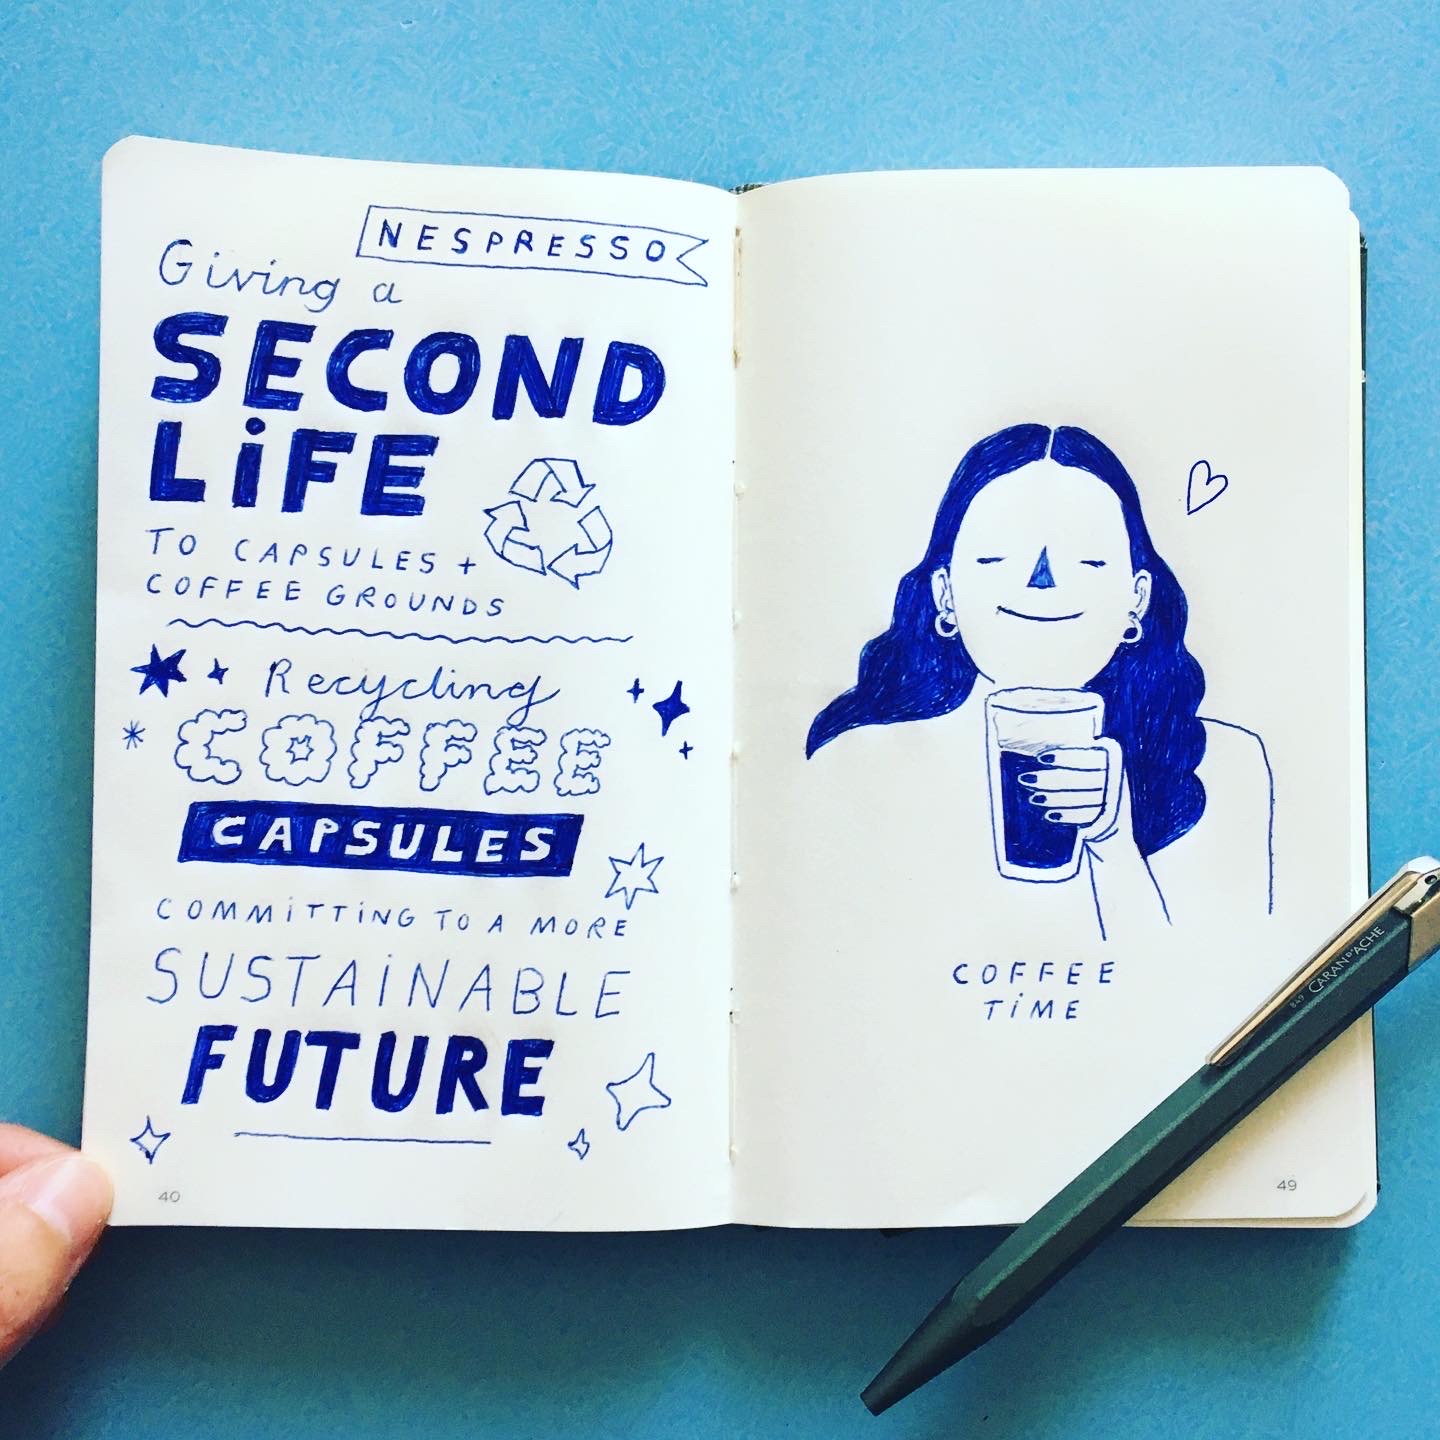 NESPRESSO
Giving a
SECOND
LiFE
TO CAPSULES +
COFFEE GROUNDS
Recycling
COFFEE
CAPSULES
COMMiTTiNG TO A MORE
SUSTAiNABLE
FUTURE
40
COFFEE
TiME
49
849 CARAN D'ACHE